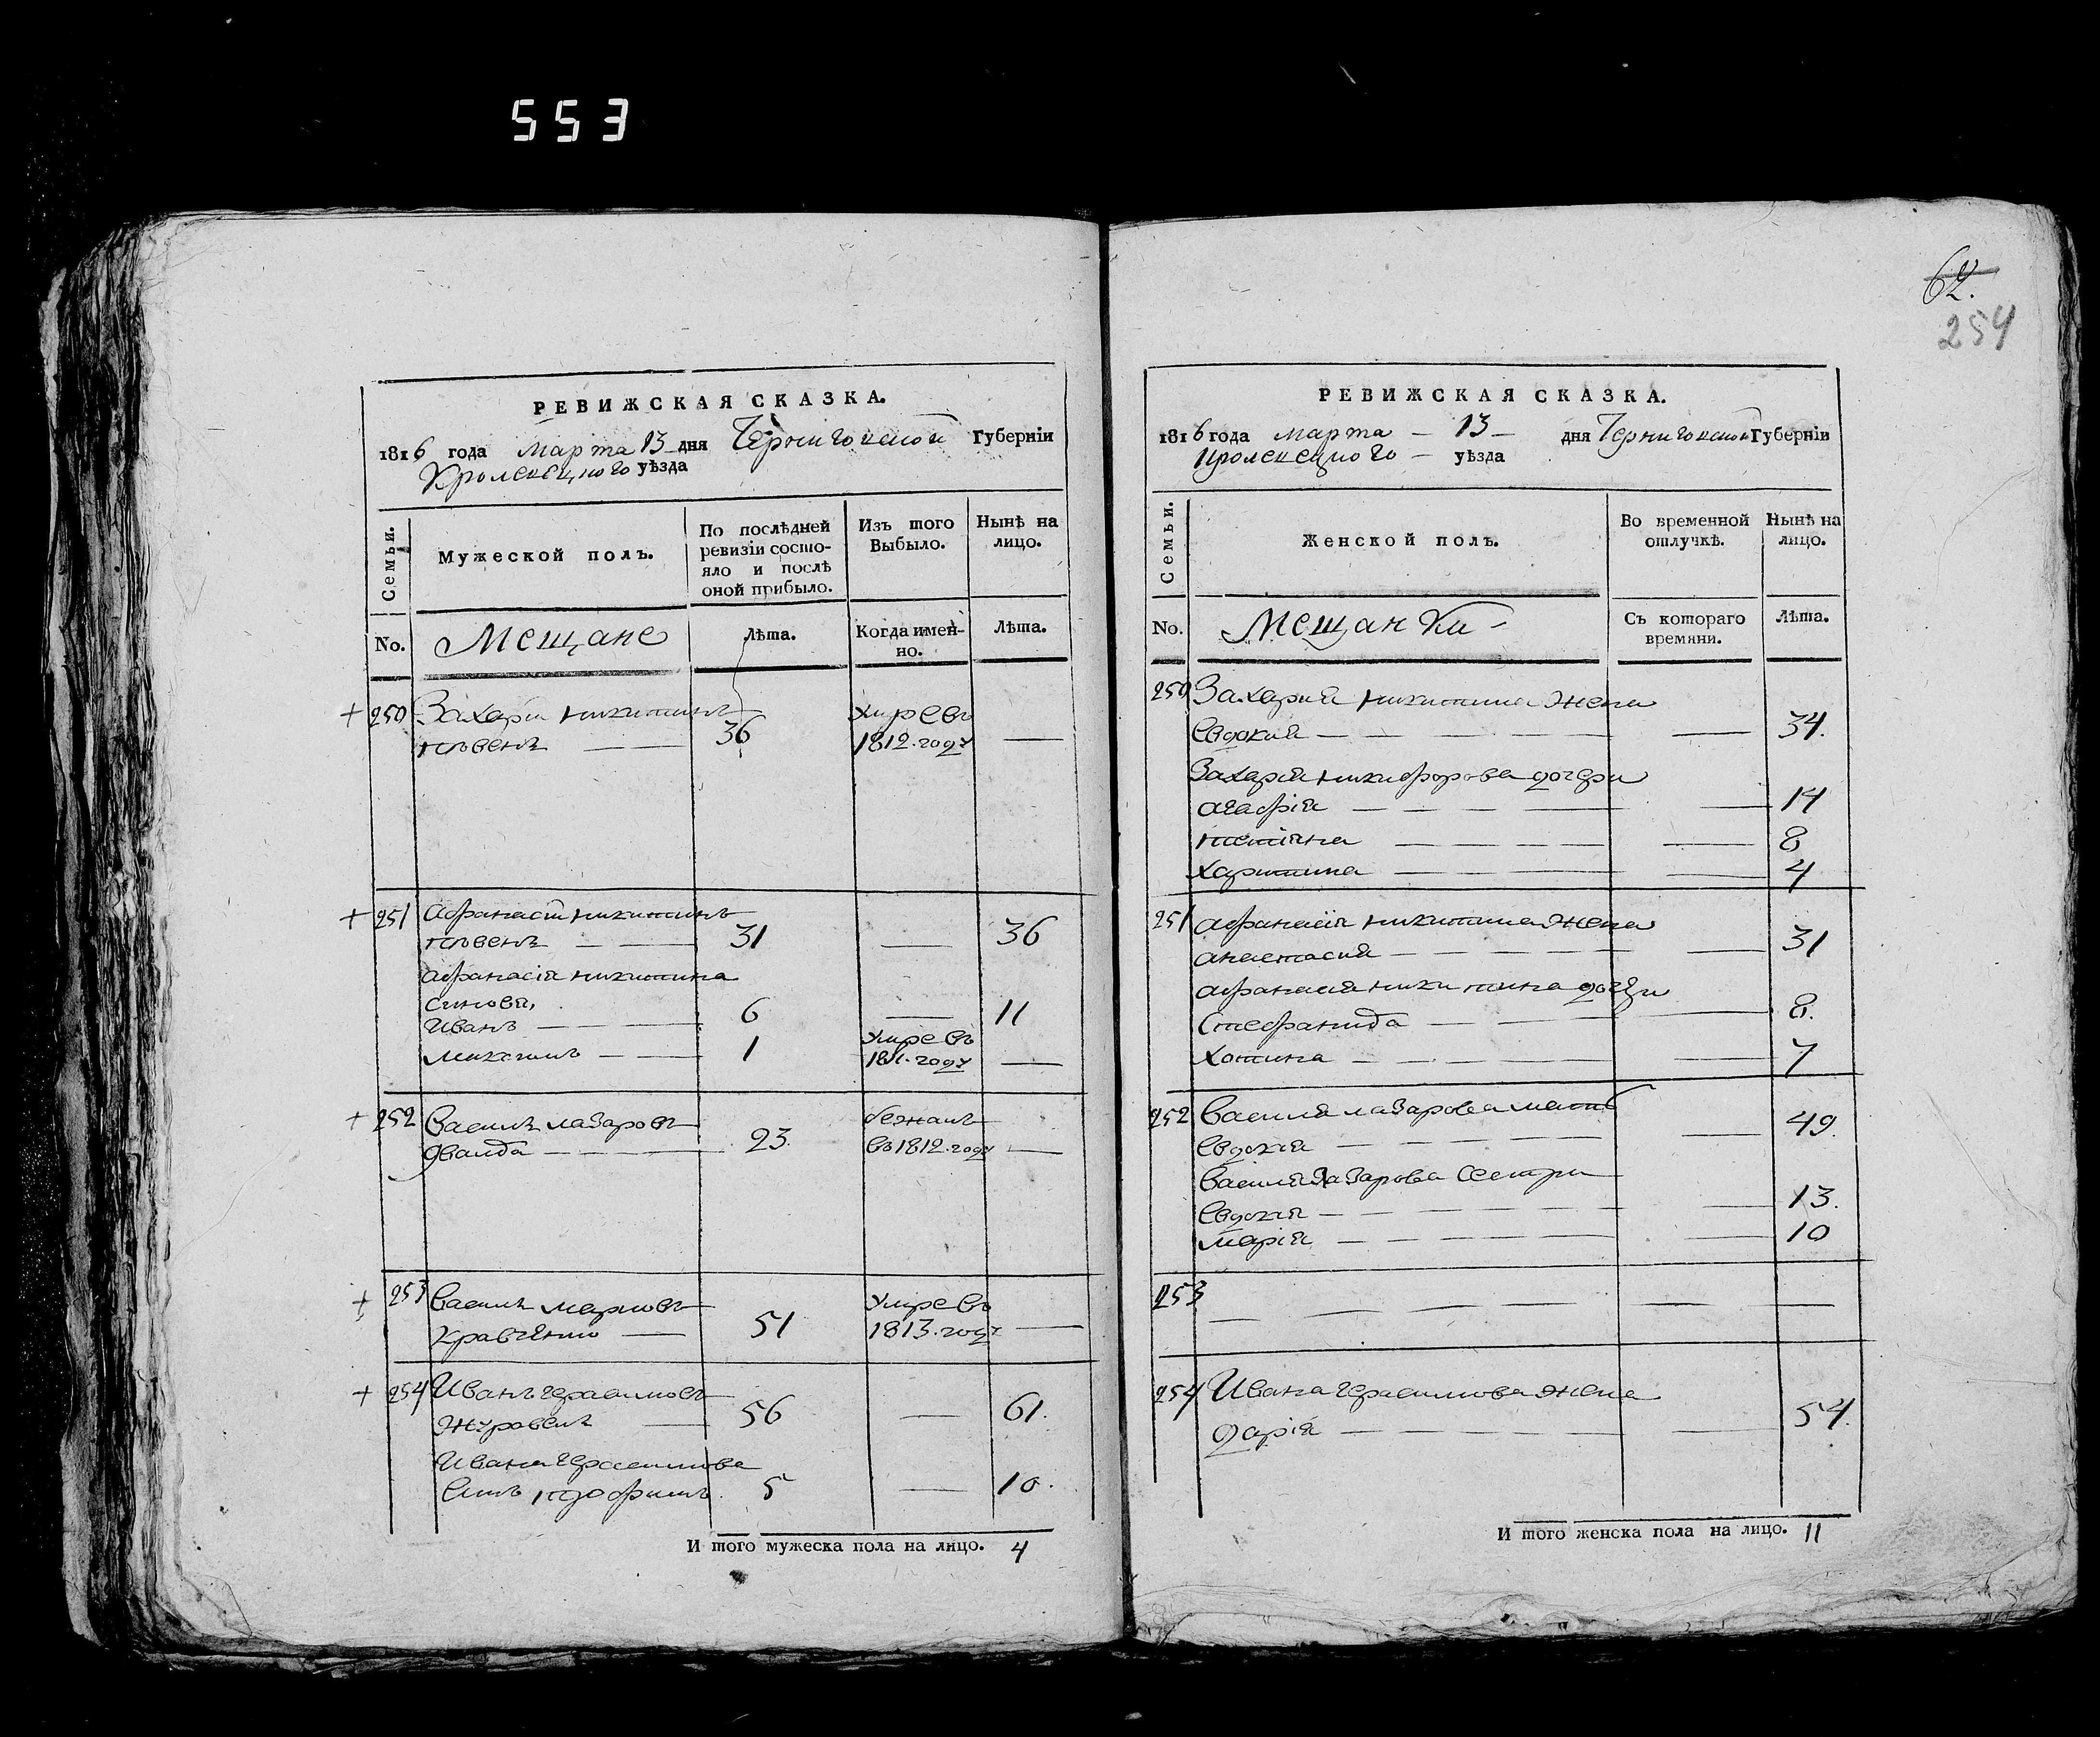 553
62.
254
РЕВИЖСКАЯ СКАЗКА.
1816 года марта 13 дня Черниговской Губерніи
Кролевецкого уѣзда
Семьи.
Мужеской полъ.
По послѣдней ревизіи состояло и послѣ оной прибыло.
Изъ того Выбыло.
Нынѣ на лицо.
No.
Мещане
Лѣта.
Когда именно.
Лѣта.
+ 250 Захарій никитинъ
36
умре въ
1812. году —
+ 251 афанасій никитинъ
31 — 36
афанасія никитина
синовя,
Иванъ — 6 — 11
1
умре въ
181. году —
+ 252 Василь лазаровъ
23.
бежалъ
въ 1812. году —
+ 253 Василь марковъ
кравченко — 51
умре въ
1813. году —
+ 254 Иванъ герасимовъ
журавель — 56 — 61.
Ивана герасимова
Синъ 5 — 10.
И того мужеска пола на лицо. 4
РЕВИЖСКАЯ СКАЗКА.
1816 года марта — 13 — дня Черниговской Губерніи
кролевецкого — уѣзда
Семьи.
Женской полъ.
Во временной отлучкѣ.
Нынѣ на лицо.
No.
Мещанки
Съ котораго времяни.
Лѣта.
250 Захарія никитина жена
Евдокия — 34.
Захарія никифорова дочери
агафія — 14
татіяна — 8
харитина — 4
251 афанасія никитина жена
анастасия — 31
афанасия никитина дочери
Стефанида — 8.
хотина — 7
252 Василя лазарова мать
Евдокія — 49.
Василя лазарова Сестри
Евдокія — 13.
марія — 10
253 —
254 Ивана герасимова жена
дарія — 54.
И того женска пола на лицо. 11